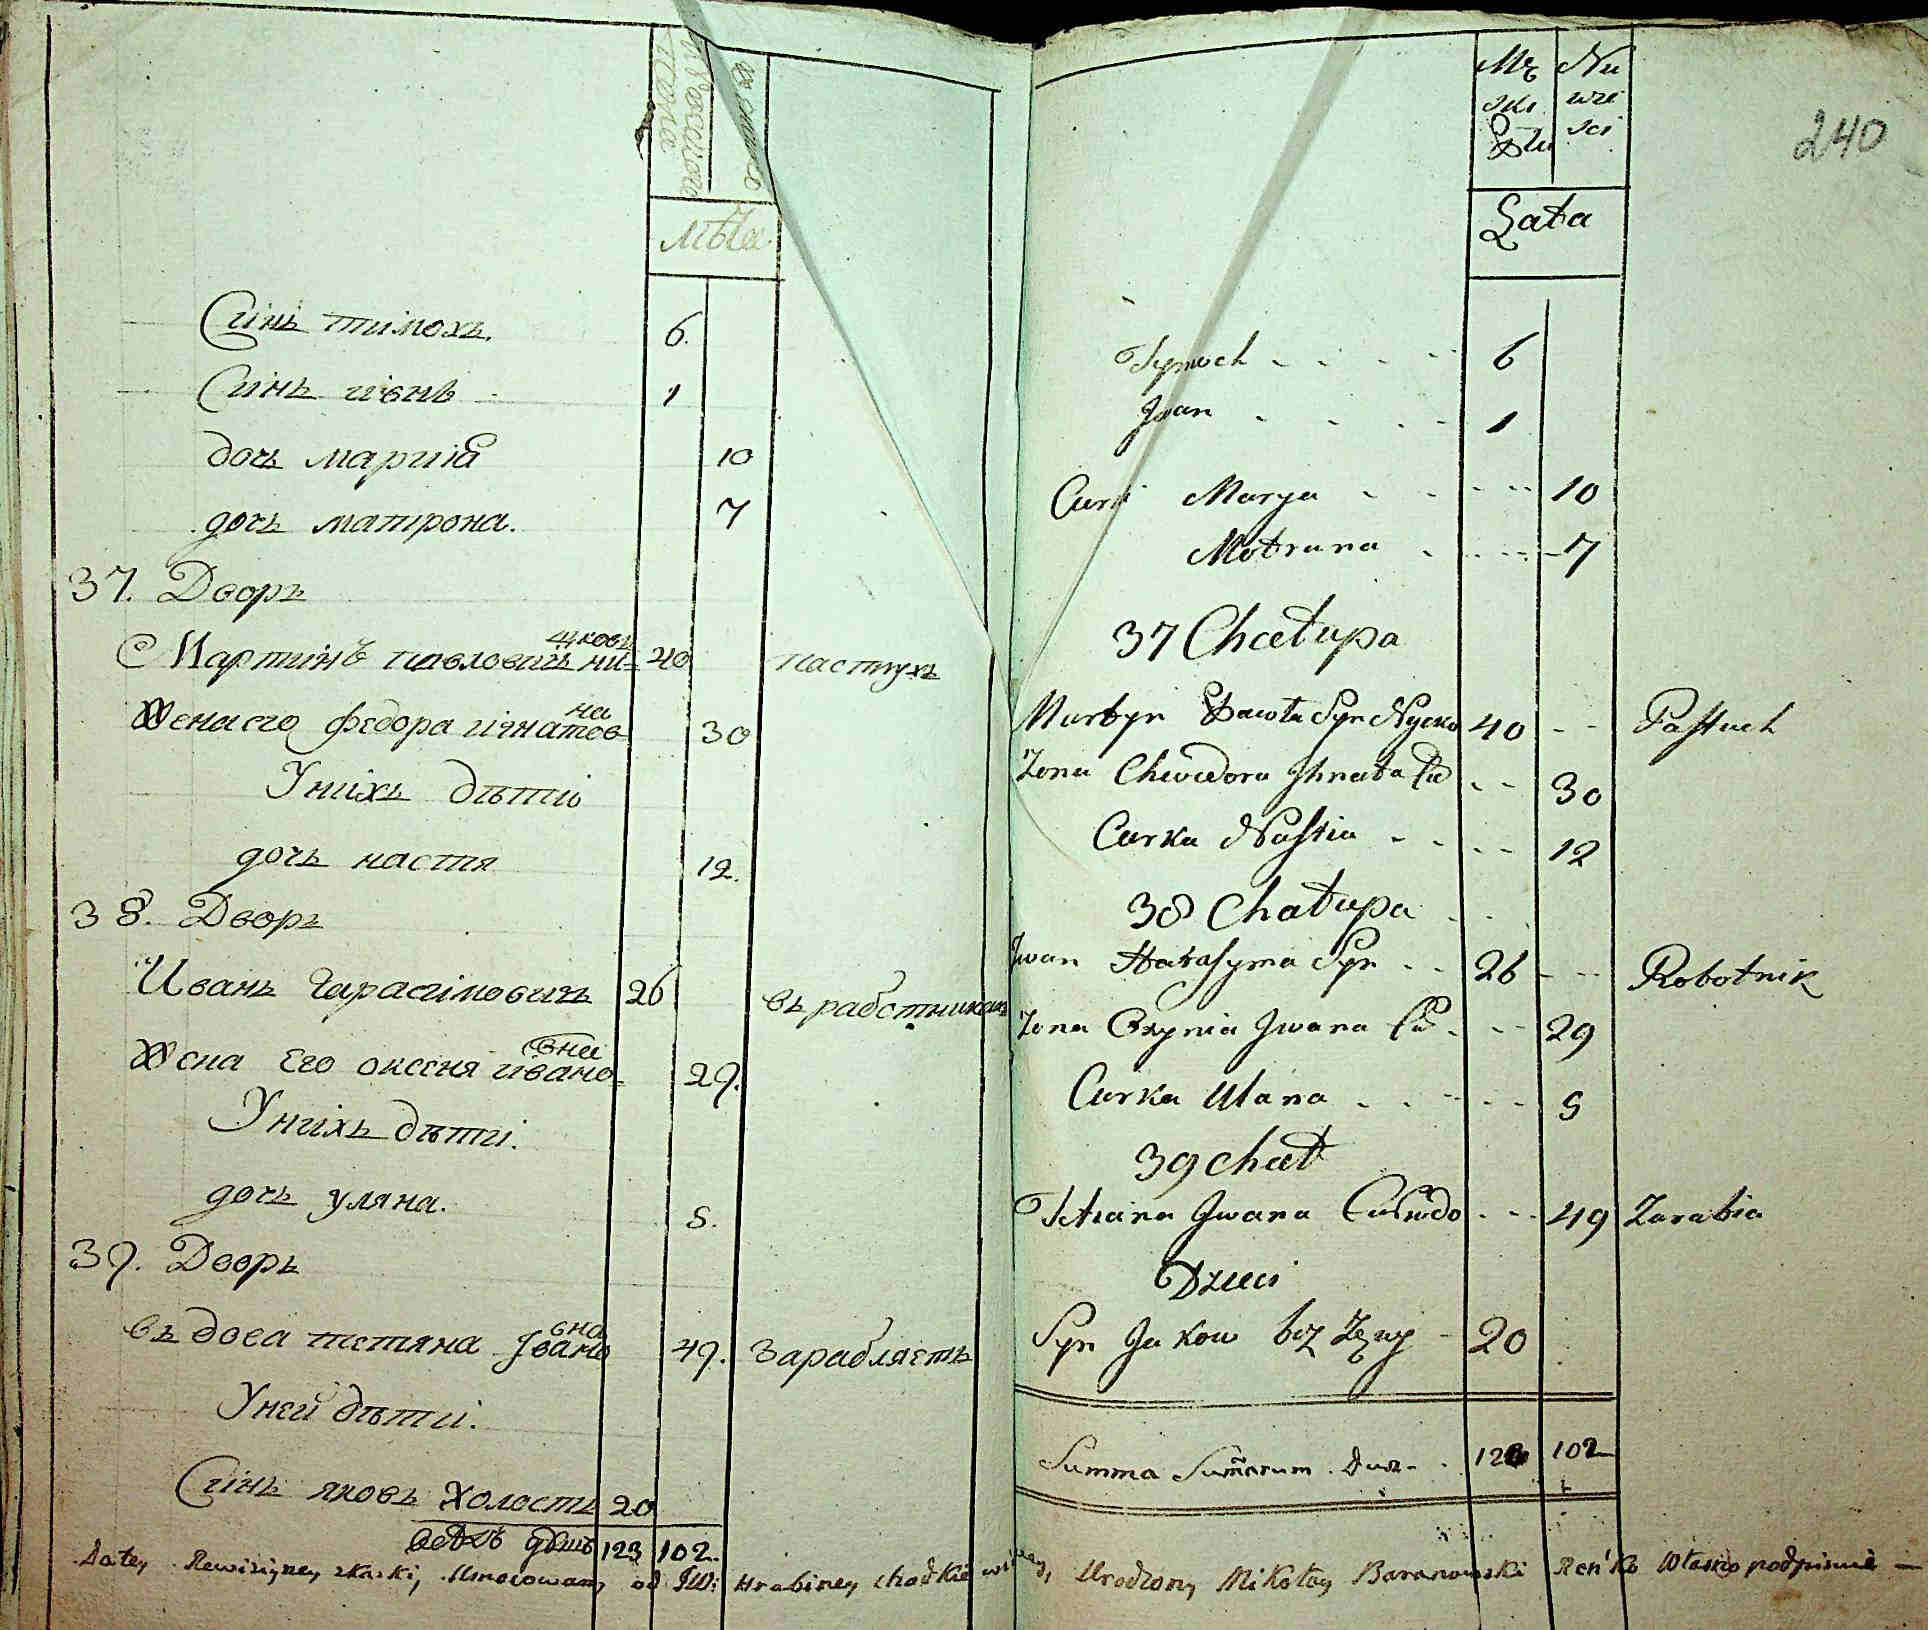 Лѣта
Сінь тимохъ. 6.
Синь івінь 1
дочь мариіа 10
дочь матрона. 7
37. Дворъ
Мартинъ павловичъ ни-
щковъ 40 пастухъ
Жена его федора ігнатов
на 30
У ниіхъ дѣтиі
дочь настя 12.
38. Дворъ
Иванъ Гарасимовичъ 26 въ работникахъ
Жена Его оксеня івано
вна 29.
У ниіхъ дѣти.
дочь уляна. 5.
39. Дворъ
въдова тетяна Jвано
вна 49. Зарабляеть
У ней дѣти.
Сінь яковъ холость 20
всѣхъ душъ 123 102.
240
Męz Nie
ski wie
Płu sci
Łata
Tymoch 6
Jwan 1
Curki Marya 10
Motruna 7
37 Chałupa
Martyn Pawła Syn Nyczko 40 Pastuch
Zona Chwiedora Ihnata Có 30
Curka Nastia 12
38 Chałupa
Jwan Harasyma Syn 26 Robotnik
Zona Oxynia Jwana Có 29
Curka Ulana 5
39 Chał
Tetiana Jwana Có Wdo 49 Zarabia
Dzieci
Syn Jakow bez Zęny 20
Summa Summarum Dusz 123 102
Datey Rewizijney skaski, Umocowany od JW: Hrabiney Chodkiewiczowey, Urodzony Mikołay Baranowski Ręńko Własno podpisuie —